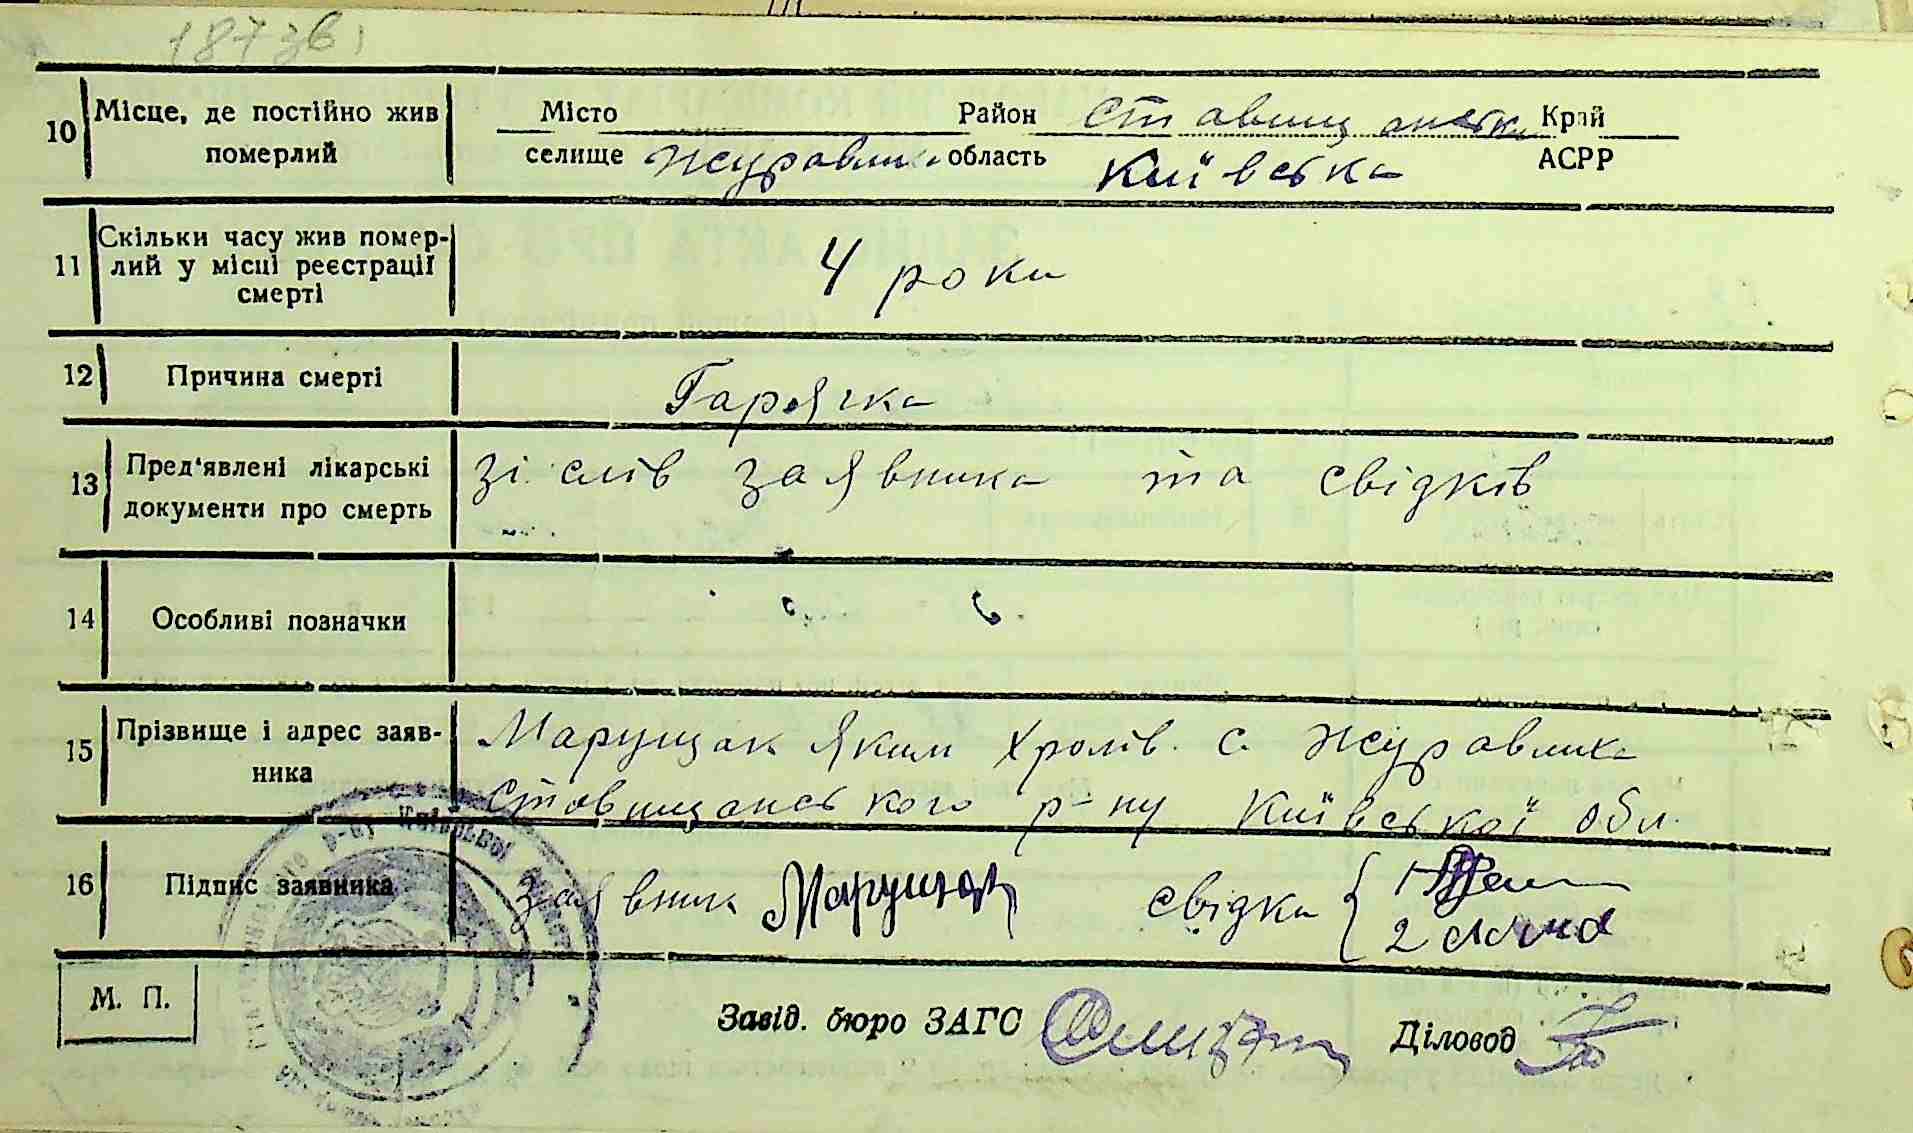 187зв
10 Місце, де постійно жив померлий
Місто Район Ставищанськ Край
селище Журавлиха область Київська АСРР
11 Скільки часу жив помер-
лий у місці реєстрації
смерті
4 роки
12 Причина смерті
Гарячка
13 Пред'явлені лікарські
документи про смерть
зі слів заявника та свідків
14 Особливі позначки
15 Прізвище і адрес заяв-
ника
Марущак Яким Хролів. с. Журавлиха
Ставищанського р-ну Київської обл.
16 Підпис заявника
Заявник Марущак свідки 1
2
М. П.
Завід. бюро ЗАГС Діловод
р-ну Київської